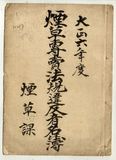 大正六年度
煙草專賣法規違反者名簿
煙草課